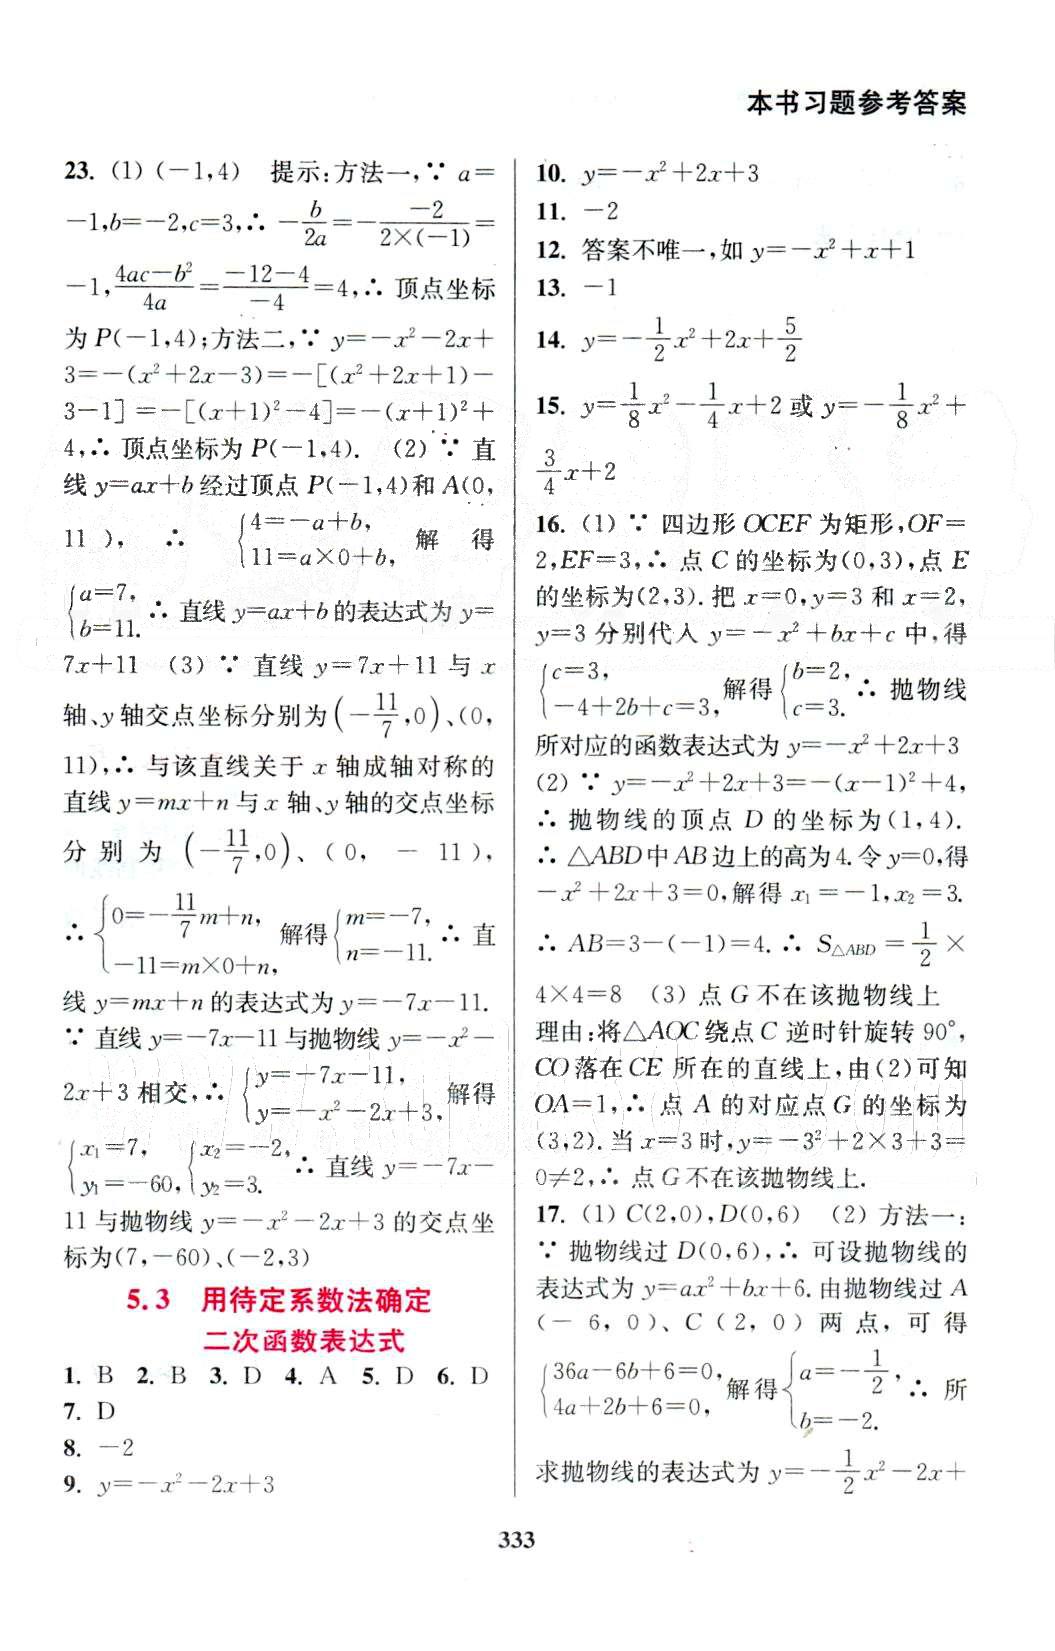 本书习题参考答案
23. (1) (-1,4) 提示:方法一,∵ a=
-1,b=-2,c=3,∴ -b/2a=--2/2×(-1)=
-1,4ac-b²/4a=-12-4/-4=4,∴ 顶点坐标
为 P(-1,4);方法二,∵ y=-x²-2x+
3=-(x²+2x-3)=-[(x²+2x+1)-
3-1]=-[(x+1)²-4]=-(x+1)²+
4,∴ 顶点坐标为 P(-1,4). (2) ∵ 直
线 y=ax+b 经过顶点 P(-1,4)和 A(0,
11), ∴ {4=-a+b, 11=a×0+b, 解得
{a=7, b=11. ∴ 直线 y=ax+b 的表达式为 y=
7x+11 (3) ∵ 直线 y=7x+11 与 x
轴、y 轴交点坐标分别为(-11/7,0)、(0,
11),∴ 与该直线关于 x 轴成轴对称的
直线 y=mx+n 与 x 轴、y 轴的交点坐标
分别为 (-11/7,0)、(0,-11),
∴ {0=-11/7m+n, -11=m×0+n, 解得{m=-7, n=-11. ∴ 直
线 y=mx+n 的表达式为 y=-7x-11.
∵ 直线 y=-7x-11 与抛物线 y=-x²-
2x+3 相交,∴ {y=-7x-11, y=-x²-2x+3, 解得
{x₁=7, y₁=-60, {x₂=-2, y₂=3. ∴ 直线 y=-7x-
11 与抛物线 y=-x²-2x+3 的交点坐
标为(7,-60)、(-2,3)
5.3 用待定系数法确定
二次函数表达式
1. B 2. B 3. D 4. A 5. D 6. D
7. D
8. -2
9. y=-x²-2x+3
10. y=-x²+2x+3
11. -2
12. 答案不唯一,如 y=-x²+x+1
13. -1
14. y=-1/2x²+2x+5/2
15. y=1/8x²-1/4x+2 或 y=-1/8x²+
3/4x+2
16. (1) ∵ 四边形 OCEF 为矩形,OF=
2,EF=3,∴ 点 C 的坐标为(0,3),点 E
的坐标为(2,3).把 x=0,y=3 和 x=2,
y=3 分别代入 y=-x²+bx+c 中,得
{c=3, -4+2b+c=3, 解得{b=2, c=3. ∴ 抛物线
所对应的函数表达式为 y=-x²+2x+3
(2) ∵ y=-x²+2x+3=-(x-1)²+4,
∴ 抛物线的顶点 D 的坐标为(1,4).
∴ △ABD中 AB 边上的高为4.令 y=0,得
-x²+2x+3=0,解得 x₁=-1,x₂=3.
∴ AB=3-(-1)=4. ∴ S△ABD=1/2×
4×4=8 (3) 点 G 不在该抛物线上
理由:将△AOC 绕点 C 逆时针旋转 90°,
CO 落在 CE 所在的直线上,由(2)可知
OA=1,∴ 点 A 的对应点 G 的坐标为
(3,2).当 x=3 时,y=-3²+2×3+3=
0≠2,∴ 点 G 不在该抛物线上.
17. (1) C(2,0),D(0,6) (2) 方法一:
∵ 抛物线过 D(0,6),∴ 可设抛物线的
表达式为 y=ax²+bx+6.由抛物线过 A
(-6,0)、C(2,0)两点,可得
{36a-6b+6=0, 4a+2b+6=0, 解得{a=-1/2, b=-2. ∴ 所
求抛物线的表达式为 y=-1/2x²-2x+
333